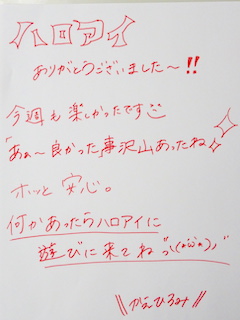 ハロアイ
ありがとうございました〜!!
今週も楽しかったです
「あぁ〜良かった事沢山あったね
ホッと安心。
何かあったらハロアイに
遊びに来てね
\\かえひろみ//